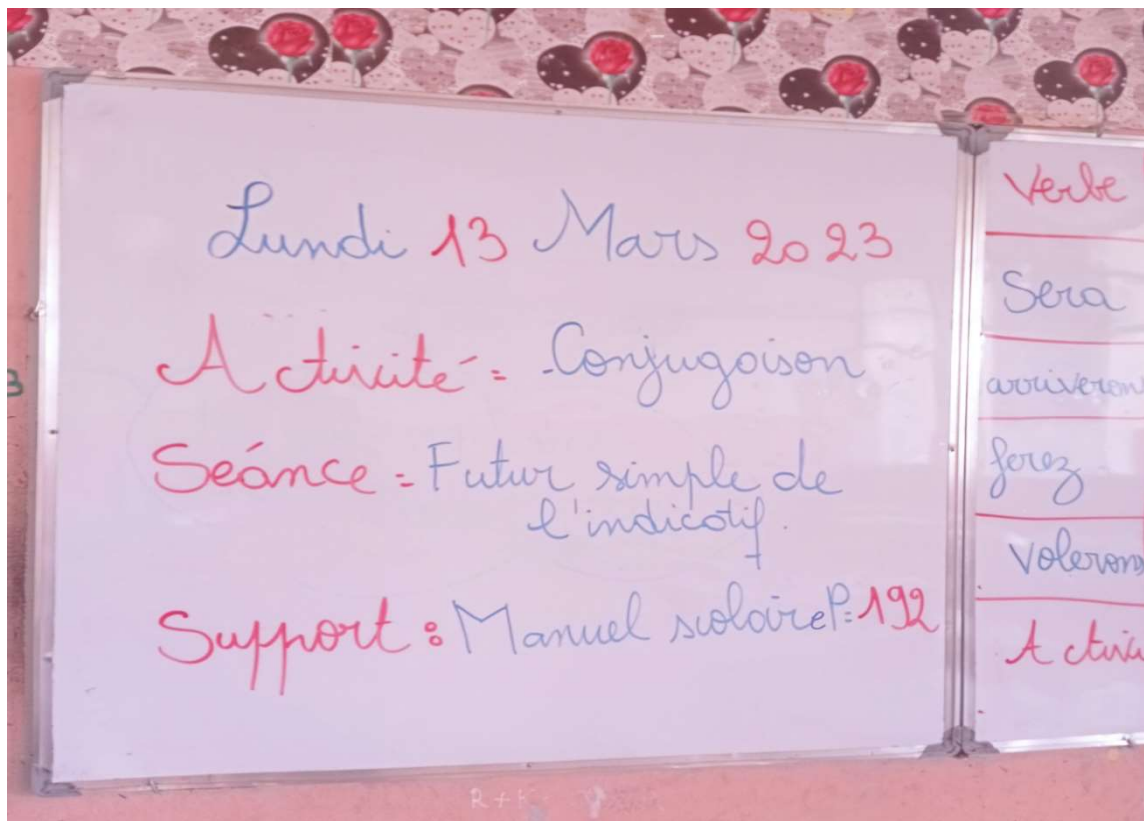 Lundi 13 Mars 2023
Activité = Conjugaison
Séance = Futur simple de
l'indicatif.
Support : Manuel scolaire P: 192
Verbe
Sera
arriveron
ferez
Volerons
Activi
R+